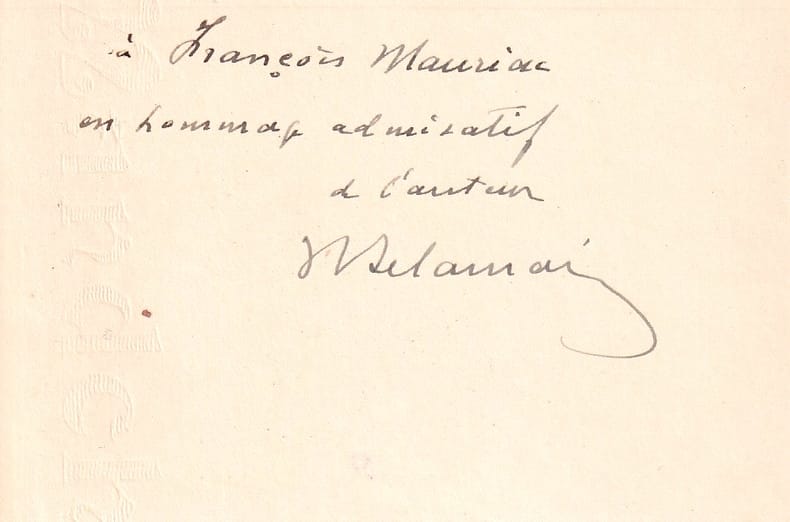 à François Mauriac
en hommage admiratif
de l'auteur
Delamain